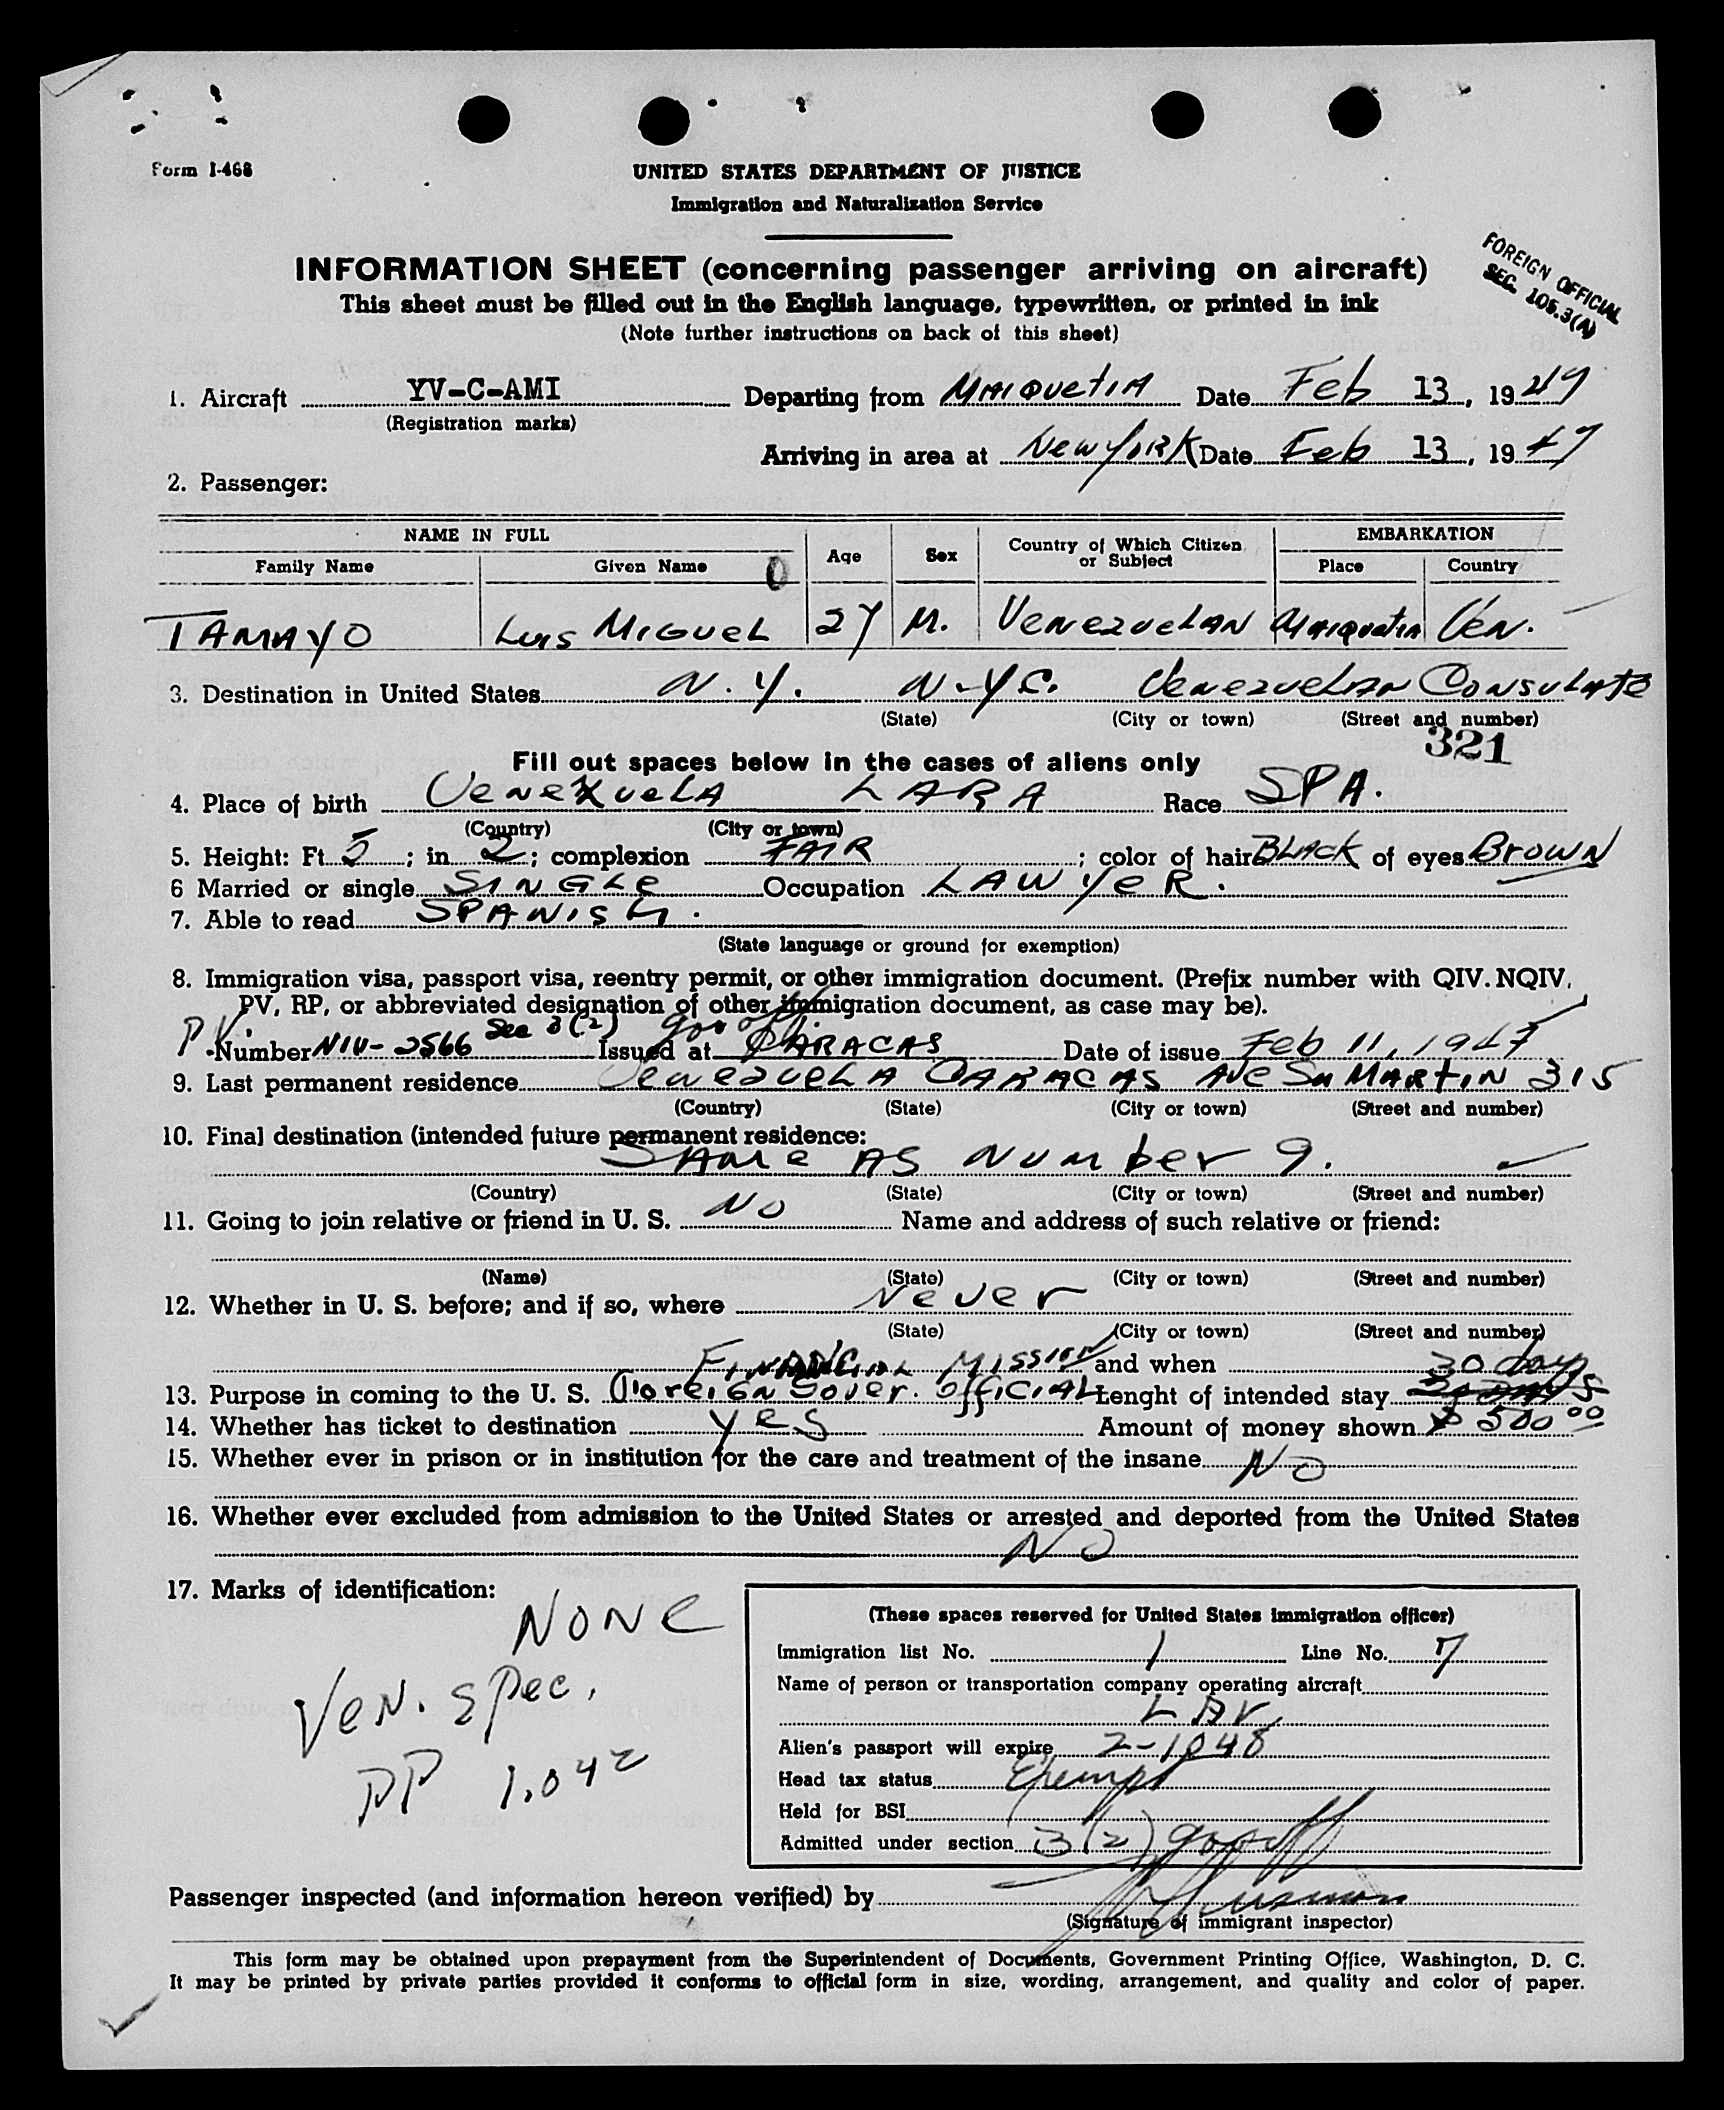 Form I-468
UNITED STATES DEPARTMENT OF JUSTICE
Immigration and Naturalization Service
INFORMATION SHEET (concerning passenger arriving on aircraft)
This sheet must be filled out in the English language, typewritten, or printed in ink
(Note further instructions on back of this sheet)
FOREIGN OFFICIAL
SEC. 105.3(A)
1. Aircraft YV-C-AMI Departing from MAIQUETIA Date Feb 13, 1947
(Registration marks)
Arriving in area at New YORK Date Feb 13, 1947
2. Passenger:
NAME IN FULL Age Sex Country of Which Citizen or Subject EMBARKATION
Family Name Given Name 0 Place Country
TAMAYO Luis MIGUEL 27 M. VENEZUELAN MAIQUETIA Ven.
3. Destination in United States N. Y. N-YC. Venezuelan Consulate
(State) (City or town) (Street and number)
321
Fill out spaces below in the cases of aliens only
4. Place of birth Venezuela LARA Race SPA.
(Country) (City or town)
5. Height: Ft. 5; in 2; complexion FAIR; color of hair BLACK of eyes Brown
6 Married or single SINGLE Occupation LAWYER.
7. Able to read SPANISH.
(State language or ground for exemption)
8. Immigration visa, passport visa, reentry permit, or other immigration document. (Prefix number with QIV. NQIV,
PV, RP, or abbreviated designation of other immigration document, as case may be).
PV. Sec 3(2) gov off
Number NIV-2566 Issued at CARACAS Date of issue Feb 11, 1947
9. Last permanent residence Venezuela CARACAS Ave Sn MARTIN 315
(Country) (State) (City or town) (Street and number)
10. Final destination (intended future permanent residence:
SAME AS Number 9.
(Country) (State) (City or town) (Street and number)
11. Going to join relative or friend in U. S. NO Name and address of such relative or friend:
(Name) (State) (City or town) (Street and number)
12. Whether in U. S. before; and if so, where Never
(State) (City or town) (Street and number)
FINANCIAL MISSION and when 30 days
13. Purpose in coming to the U. S. Foreign Gover. OFFICIAL Lenght of intended stay
14. Whether has ticket to destination yes Amount of money shown $ 500 00
15. Whether ever in prison or in institution for the care and treatment of the insane NO
16. Whether ever excluded from admission to the United States or arrested and deported from the United States
NO
17. Marks of identification:
NONE
Ven. spec.
PP 1.042
(These spaces reserved for United States immigration officer)
Immigration list No. 1 Line No. 7
Name of person or transportation company operating aircraft
LAV
Alien's passport will expire 2-1048
Head tax status Exempt
Held for BSI
Admitted under section 3(2) gov off
Passenger inspected (and information hereon verified) by
(Signature of immigrant inspector)
This form may be obtained upon prepayment from the Superintendent of Documents, Government Printing Office, Washington, D. C.
It may be printed by private parties provided it conforms to official form in size, wording, arrangement, and quality and color of paper.